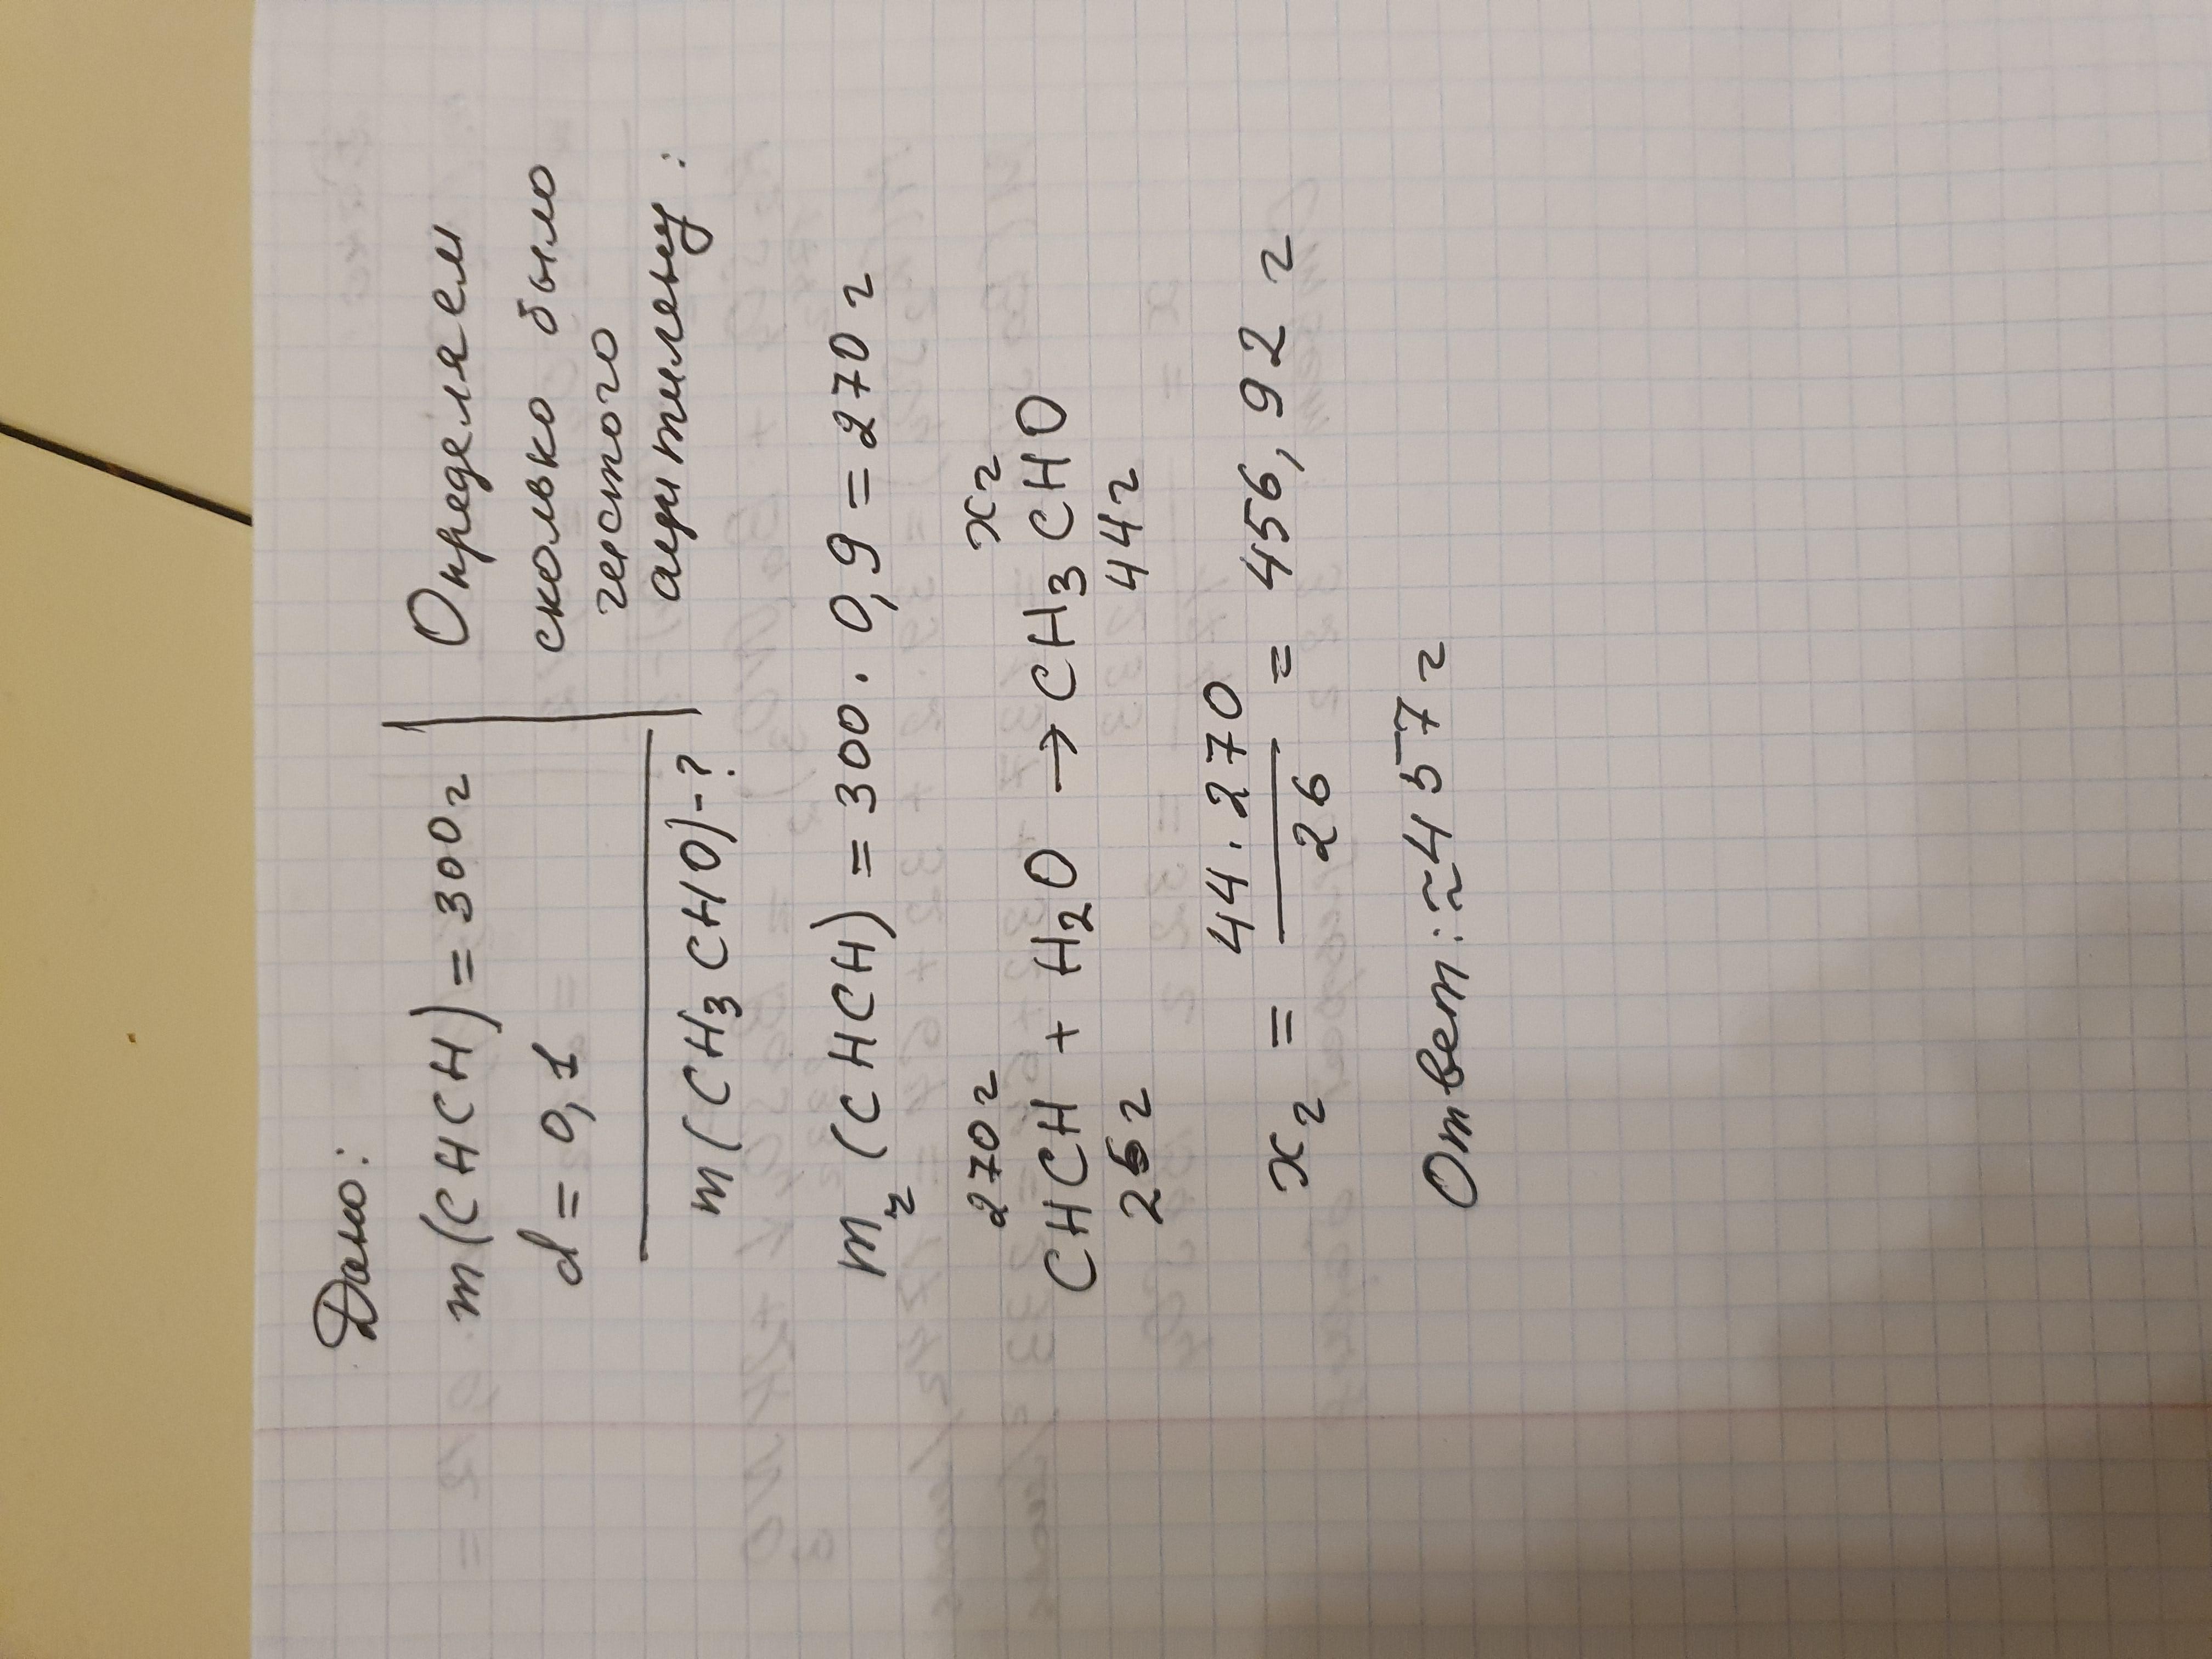 Дано:
m(CHCH)=300г
d=0,1
m(CH3CHO)-?
Определяем
сколько было
чистого
ацитилену:
mч(CHCH)=300·0,9=270г
270г xг
CHCH + H2O → CH3CHO
26г 44г
xг = 44·270 / 26 = 456,92 г
Ответ: ≈457г